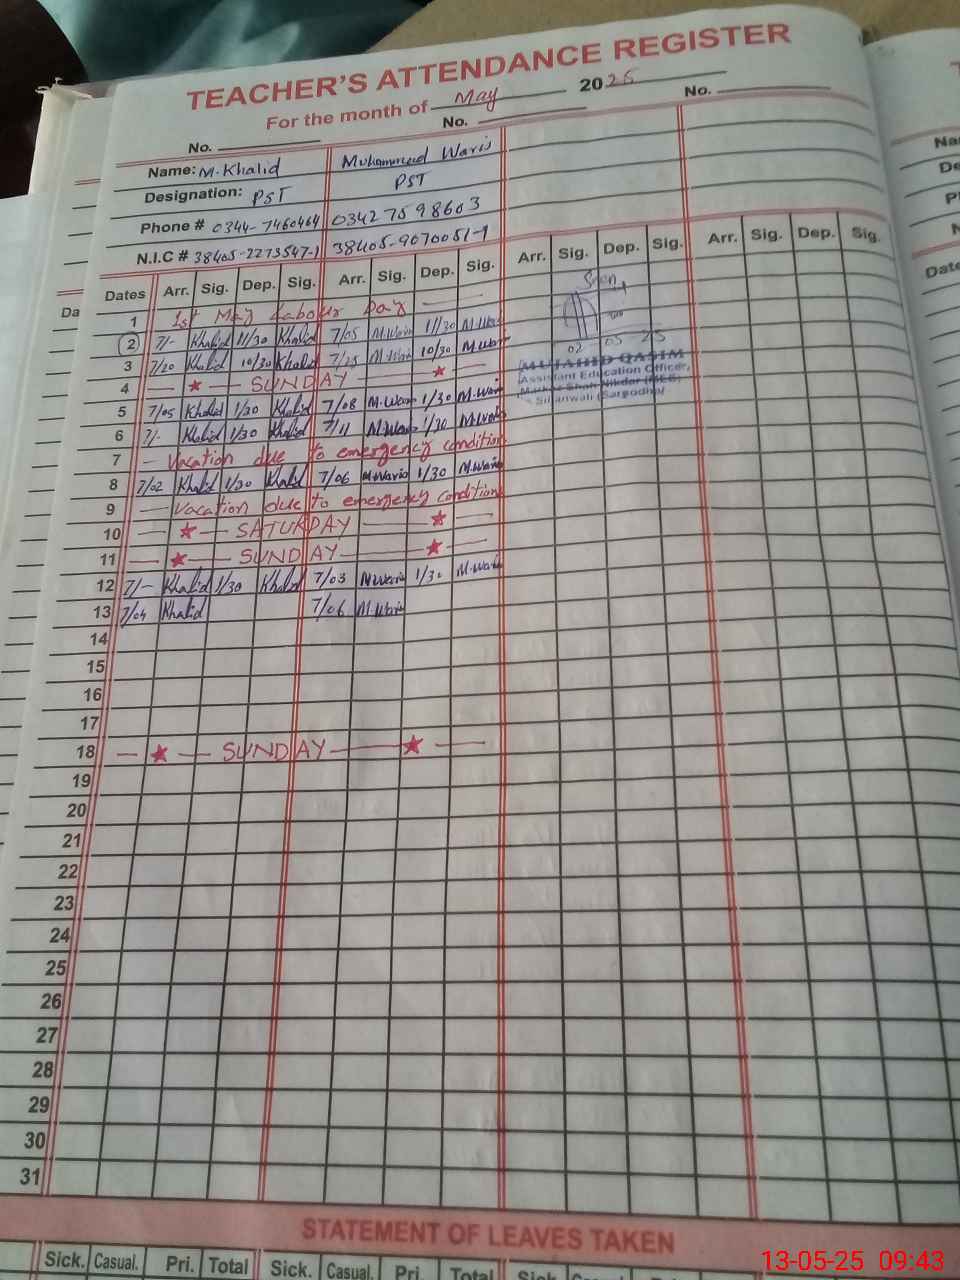 TEACHER'S ATTENDANCE REGISTER
For the month of May 2025
No. No. No.
Name: M. Khalid Muhammad Waris
Designation: PST PST
Phone # 0344-7460464 03427598603
N.I.C # 38405-2273547-1 38405-9070051-1
Dates Arr. Sig. Dep. Sig. Arr. Sig. Dep. Sig. Arr. Sig. Dep. Sig. Arr. Sig. Dep. Sig.
1 1st May Labour Day
2 7/- Khalid 11/30 Khalid 7/05 M.Waris 11/30 M.Waris
3 7/20 Khalid 10/30 Khalid 7/25 M.Waris 10/30 M.Waris
4 — ★ — SUNDAY — ★ —
5 7/05 Khalid 1/30 Khalid 7/08 M.Waris 1/30 M.Waris
6 7/- Khalid 1/30 Khalid 7/11 M.Waris 1/30 M.Waris
7 — Vacation due to emergency condition
8 7/02 Khalid 1/30 Khalid 7/06 M.Waris 1/30 M.Waris
9 — Vacation due to emergency condition
10 — ★ — SATURDAY — ★ —
11 — ★ — SUNDAY — ★ —
12 7/- Khalid 1/30 Khalid 7/03 M.Waris 1/30 M.Waris
13 7/04 Khalid 7/06 M.Waris
14
15
16
17
18 — ★ — SUNDAY — ★ —
19
20
21
22
23
24
25
26
27
28
29
30
31
Seen
02-05-25
MUJAHID QASIM
Assistant Education Officer,
Sillanwali (Sargodha)
STATEMENT OF LEAVES TAKEN
Sick. Casual. Pri. Total Sick. Casual. Pri. Total Sick. Casual.
Da
Na
De
P
N
Date
13-05-25 09:43